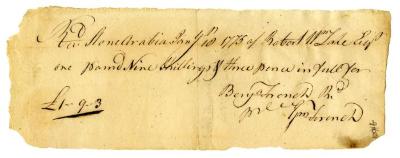 Recd Stonearabia Jany 18 1775 of Robert Wm Esqr
one pound Nine Shillings & three pence in full for
Benjn French
£1-9-3 French